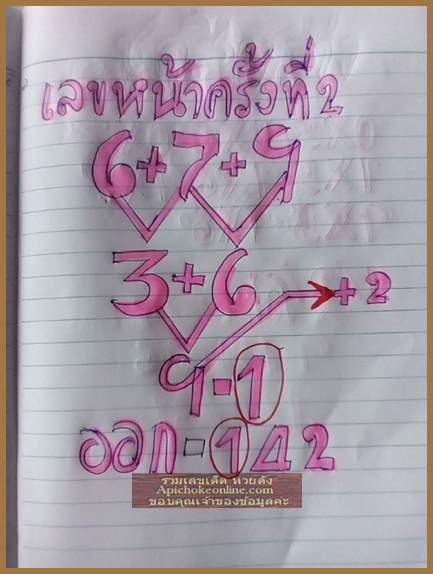 เลขหน้าครั้งที่2
6+7+9
3+6
+2
9-1
ออก-142
รวมเลขเด็ด หวยดัง
Apichokeonline.com
ขอบคุณเจ้าของข้อมูลค่ะ